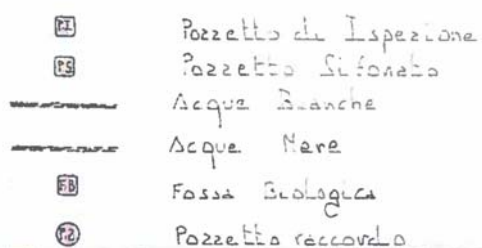 P.I. Pozzetto di Ispezione
P.S Pozzetto Sifonato
Acque Bianche
Acque Nere
F.B Fossa Biologica
P.R Pozzetto raccordo